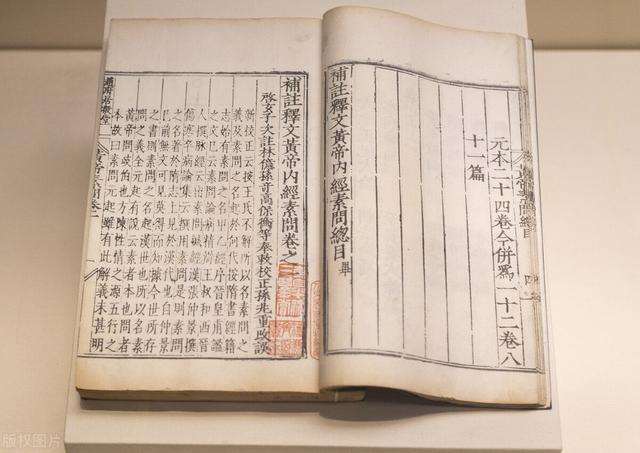 元本二十四卷今併爲一十二卷八
十一篇
補註釋文黃帝内經素問總目 畢
補註釋文黃帝内經素問卷之
啓玄子次註林億孫奇高保衡等奉敕校正孫兆重改誤
新校正云按王氏不解所以名素問之
義及素問之名起於何代按隋書經籍
志始有素問之名甲乙經序晉皇甫謐
之文已云素問論病精辨王叔和西晉
人撰脉經云出素問鍼經漢張仲景撰
傷寒卒病論集云撰用素問是則素問
之名著於隋志上見於漢代也自仲景
已前無文可見莫得而知據今世所存
之書則素問之名起漢世也所以名素
問之義全元起有說云素者本也問者
黃帝問岐伯也方陳性情之源五行之
本故曰素問元起雖有此解義未甚明
趙府居敬堂
版权图片